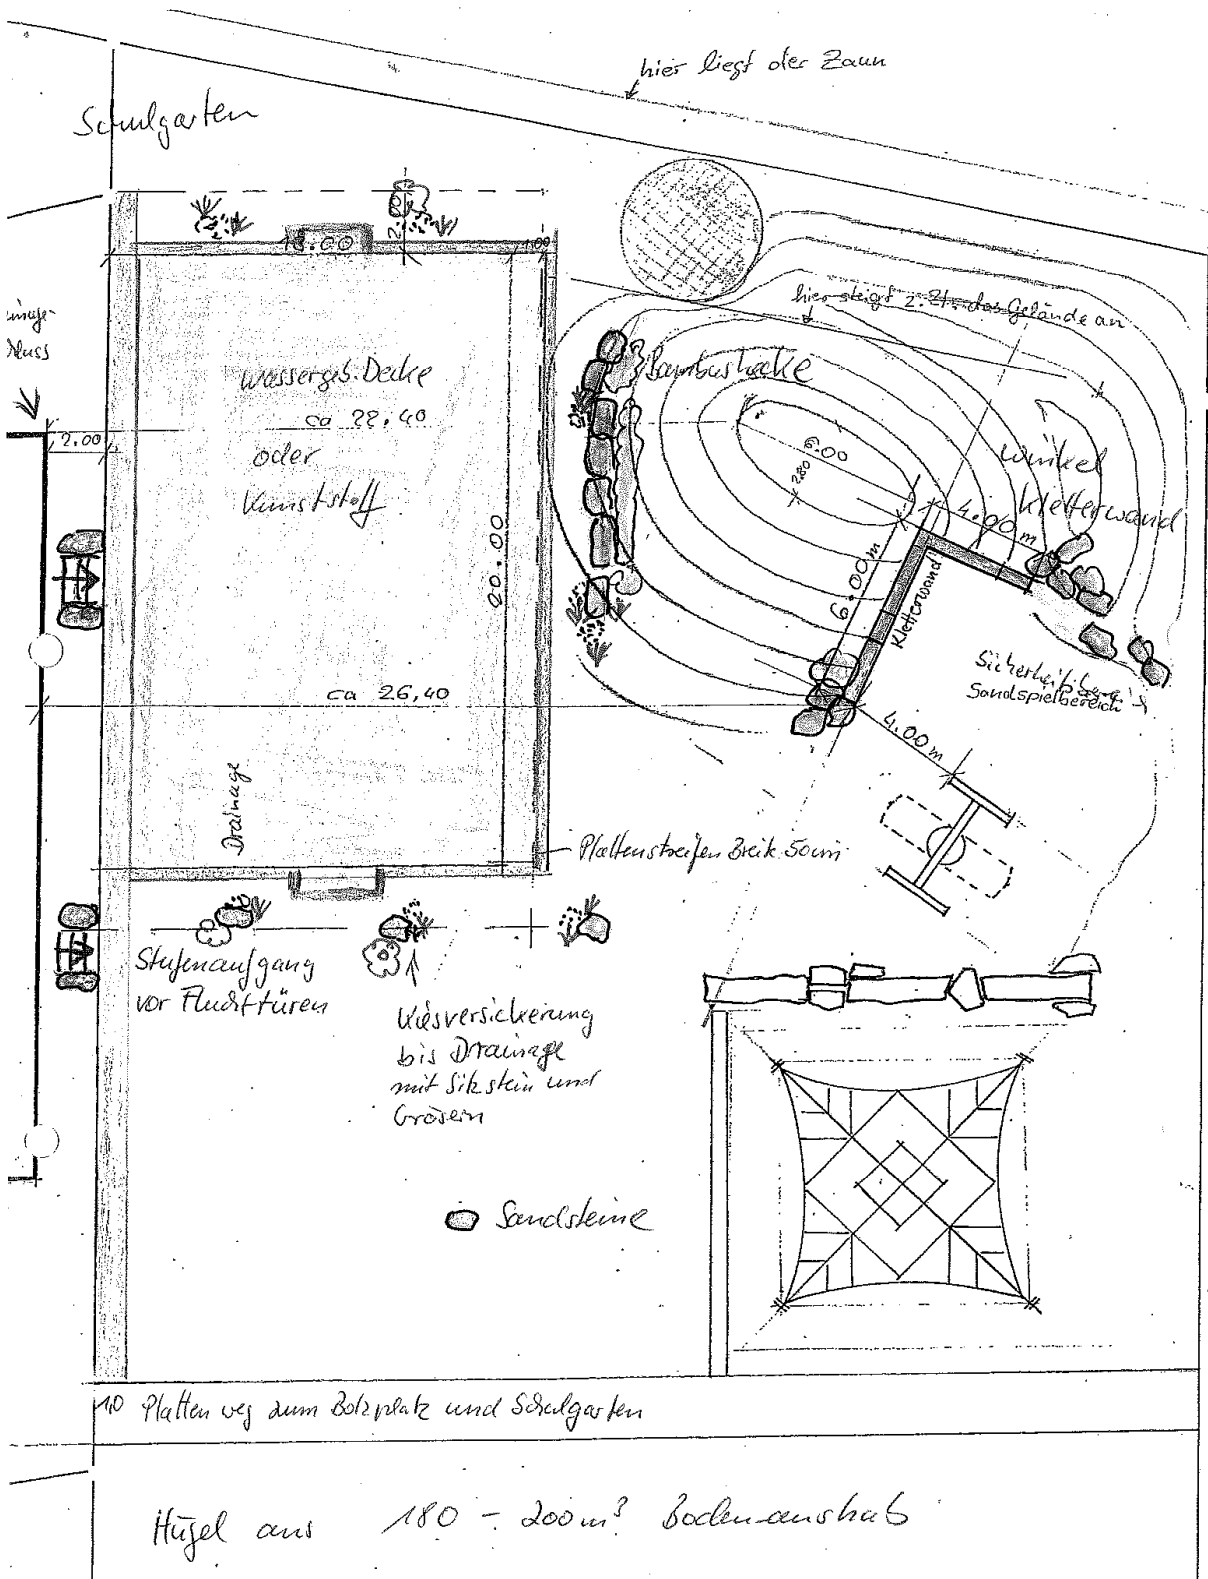 hier liegt der Zaun
Schulgarten
18.00
1.00
hier steigt z.Zt. das Gelände an
wassergeb. Decke
ca 22,40
oder
Kunststoff
Bambushecke
2.00
6.00
2.80
Winkel
Kletterwand
4.00 m
6.00 m
Kletterwand
20.00
Sandspielbereich
ca 26,40
4.00 m
Drainage
Plattenstreifen Breite 50cm
Stufenaufgang
vor Fluchttüren
Kiesversickerung
bis Drainage
mit Sitzstein und
Gräsern
Sandsteine
1,0 Plattenweg zum Bolzplatz und Schulgarten
Hügel aus 180 - 200 m³ Bodenaushub